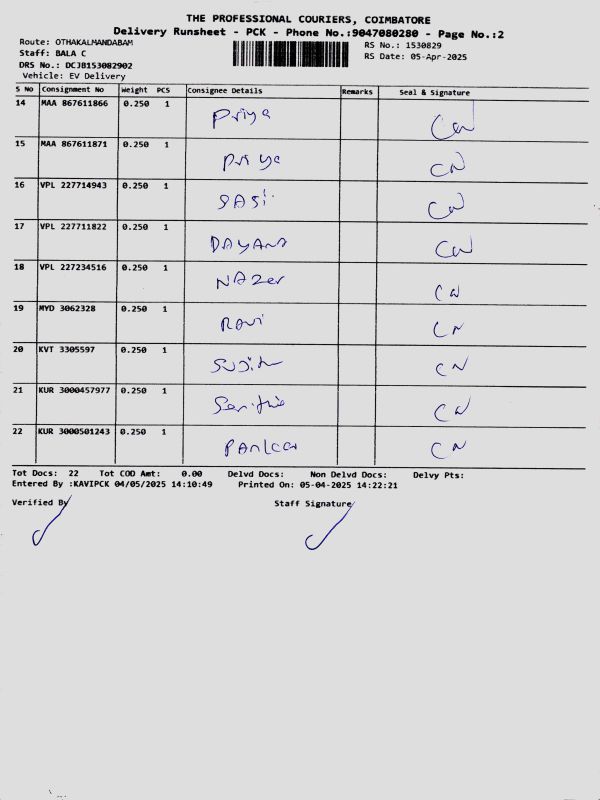 THE PROFESSIONAL COURIERS, COIMBATORE
Delivery Runsheet - PCK - Phone No.:9047080280 - Page No.:2
Route: OTHAKALMANDABAM
RS No.: 1530829
Staff: BALA C
RS Date: 05-Apr-2025
DRS No.: DCJB153082902
Vehicle: EV Delivery
S No Consignment No Weight PCS Consignee Details Remarks Seal & Signature
14 MAA 867611866 0.250 1 Priya CN
15 MAA 867611871 0.250 1 Priya CN
16 VPL 227714943 0.250 1 SASi CN
17 VPL 227711822 0.250 1 DAYANA CN
18 VPL 227234516 0.250 1 NAZer CN
19 MYD 3062328 0.250 1 Ravi CN
20 KVT 3305597 0.250 1 CN
21 KUR 3000457977 0.250 1 CN
22 KUR 3000501243 0.250 1 CN
Tot Docs: 22 Tot COD Amt: 0.00 Delvd Docs: Non Delvd Docs: Delvy Pts:
Entered By :KAVIPCK 04/05/2025 14:10:49 Printed On: 05-04-2025 14:22:21
Verified By Staff Signature